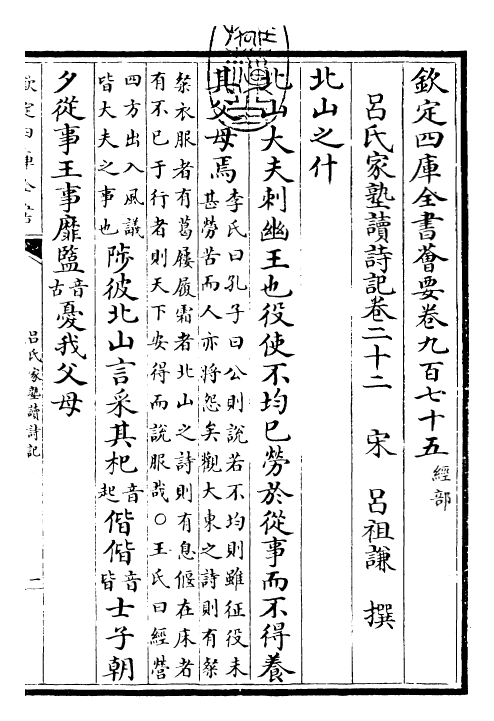 欽定四庫全書薈要卷九百七十五 經部
呂氏家塾讀詩記卷二十二 宋 呂祖謙 撰
北山之什
北山大夫刺幽王也役使不均已勞於從事而不得養
其父母焉
李氏曰孔子曰公則說若不均則雖征役未
甚勞苦而人亦將怨矣觀大東之詩則有粲
粲衣服者有葛屨履霜者北山之詩則有息偃在床者
有不已于行者則天下安得而說服哉○王氏曰經營
四方出入風議
皆大夫之事也
陟彼北山言采其杞音起偕偕音皆士子朝
夕從事王事靡盬音古憂我父母
欽定四庫全書
呂氏家塾讀詩記